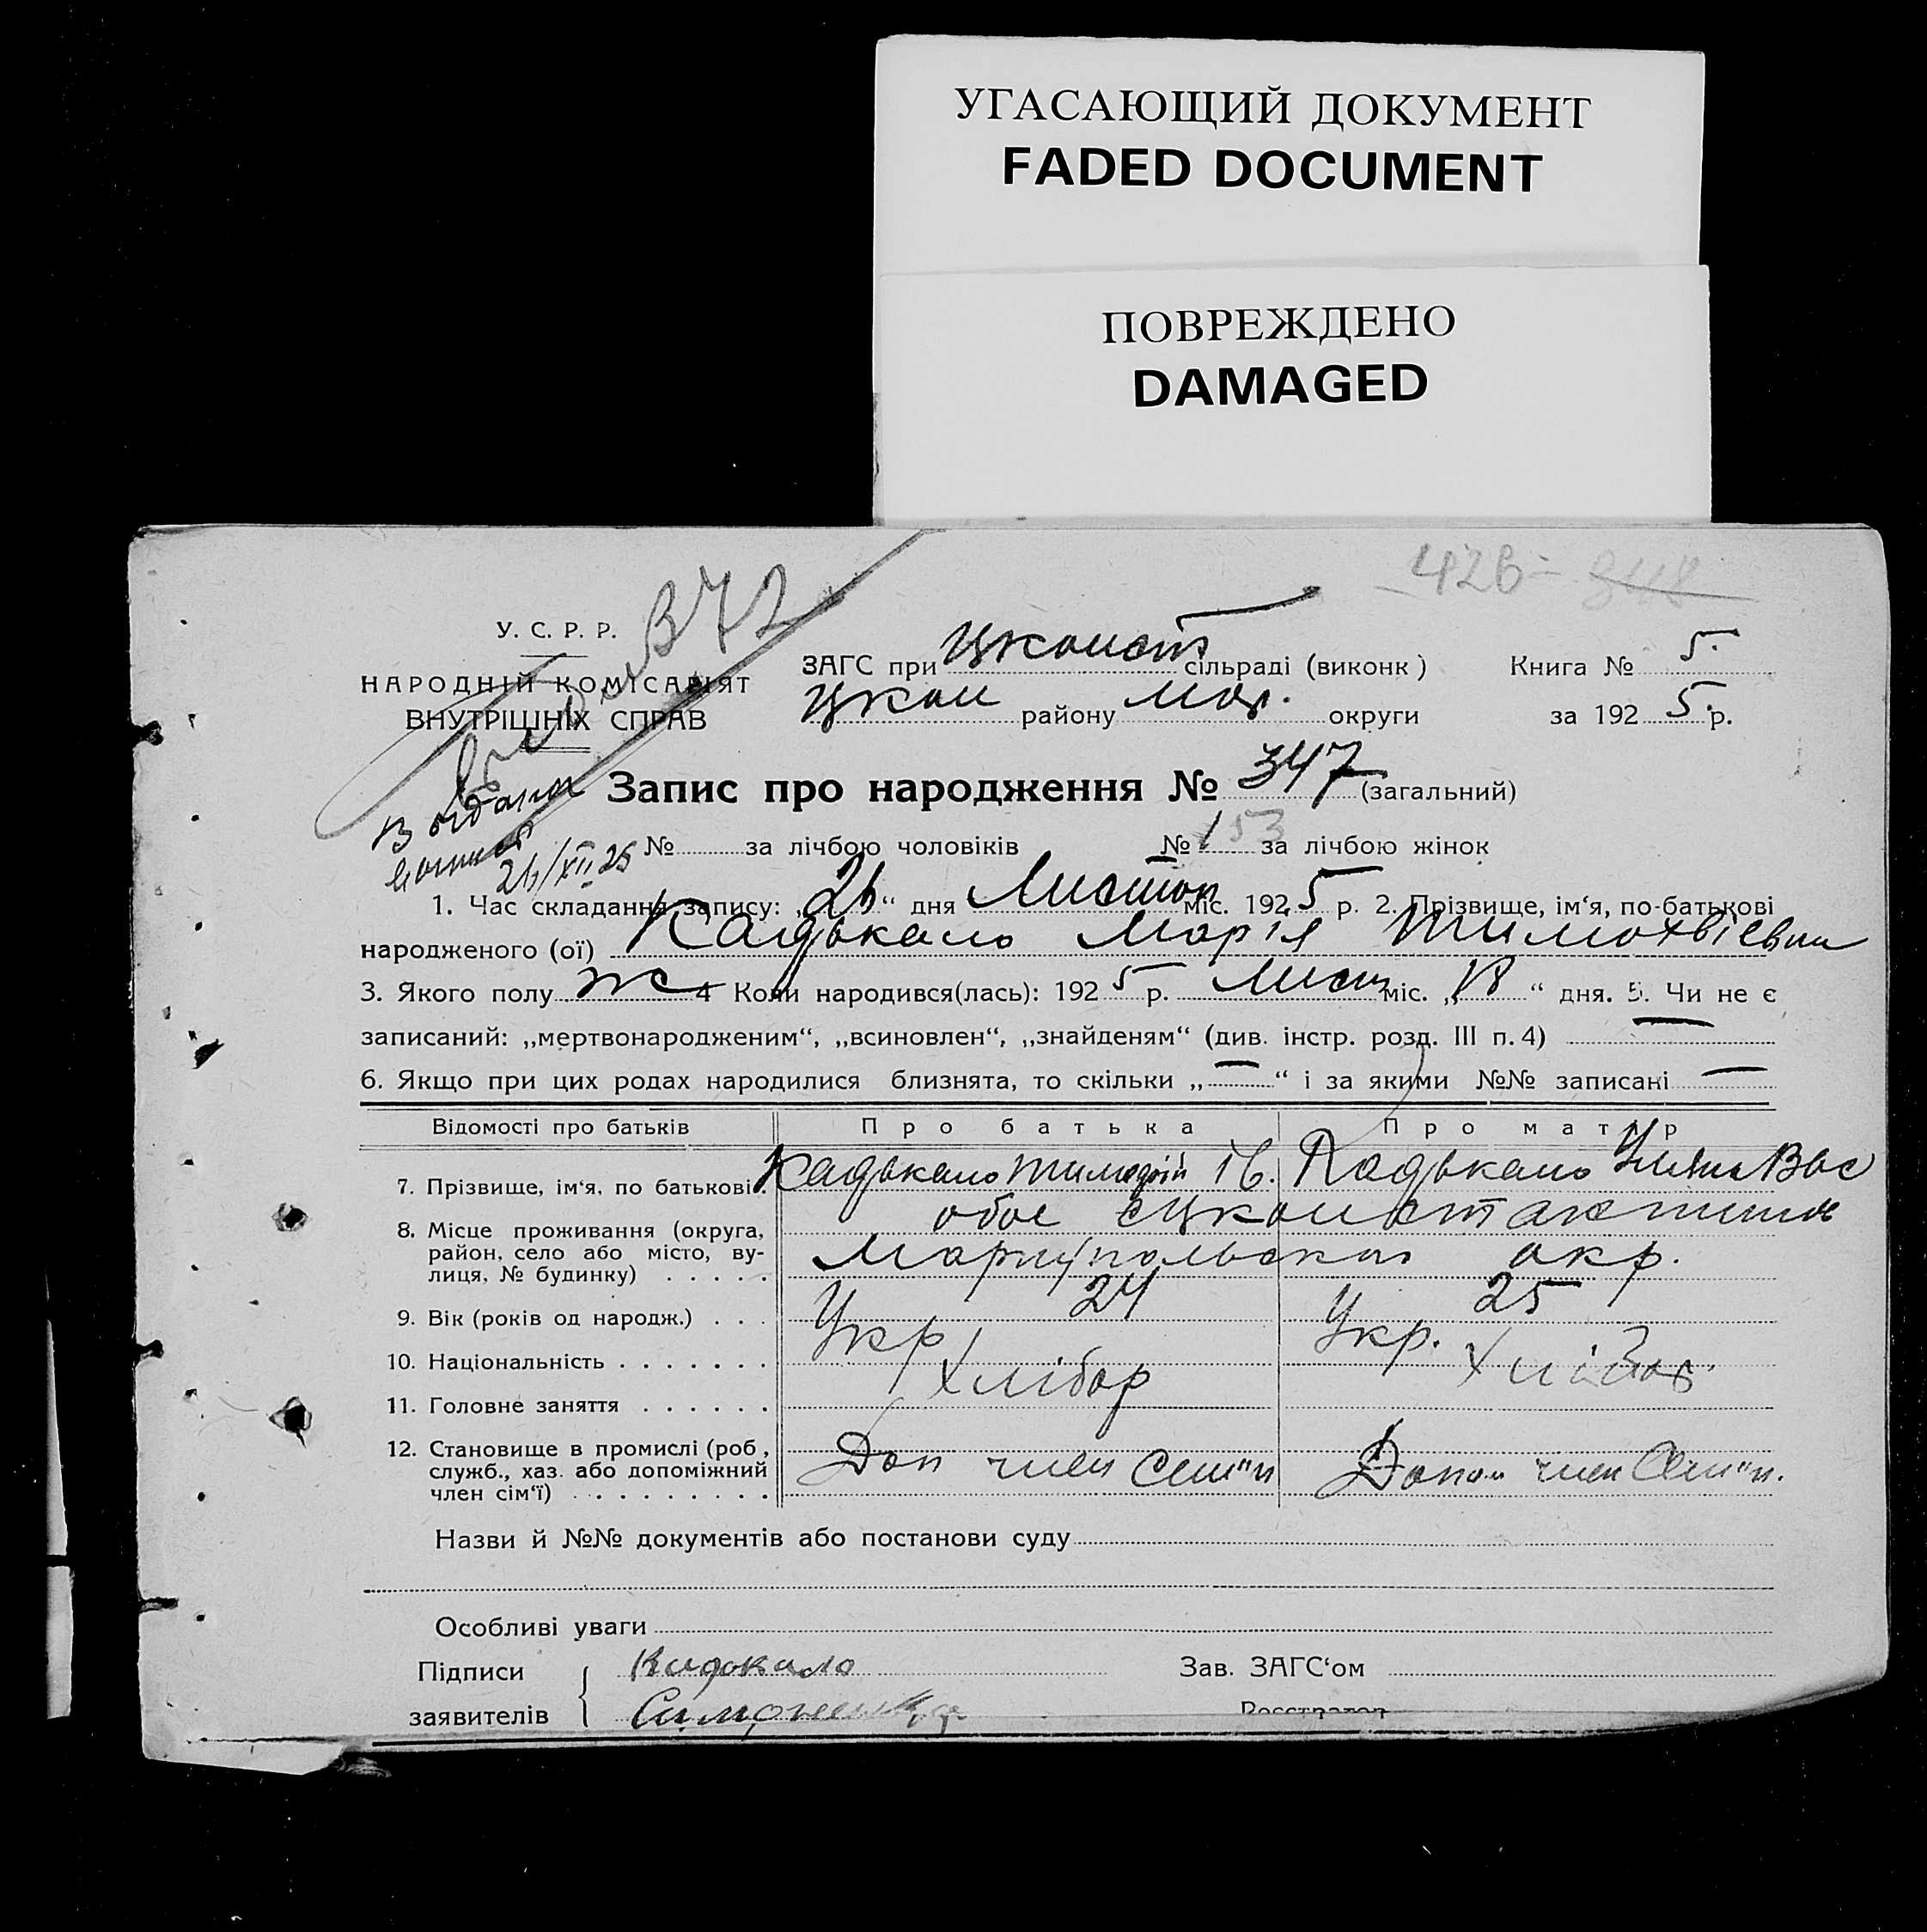 УГАСАЮЩИЙ ДОКУМЕНТ
FADED DOCUMENT
ПОВРЕЖДЕНО
DAMAGED
426 - 348
372
У. С. Р. Р.
НАРОДНІЙ КОМІСАРІЯТ
ВНУТРІШНІХ СПРАВ
ЗАГС при Цконст сільраді (виконк) Книга № 5.
Цкон району Мар. округи за 1925 р.
Запис про народження № 347 (загальний)
26/XII 25
№ за лічбою чоловіків № 153 за лічбою жінок
1. Час складання запису: „26“ дня Листоп міс. 1925 р. 2. Прізвище, ім‘я, по-батькові
народженого (ої) Кадькало Марія Тимохвієвна
3. Якого полу ж 4 Коли народився(лась): 1925 р. Лист міс. „18“ дня. 5. Чи не є
записаний: „мертвонародженим“, „всиновлен“, „знайденям“ (див. інстр. розд. III п. 4) —
6. Якщо при цих родах народилися близнята, то скільки „—“ і за якими №№ записані —
Відомості про батьків Про батька Про матір
7. Прізвище, ім‘я, по батькові. Кадькало Тимофій Ів. Кадькало Вас
8. Місце проживання (округа, район, село або місто, вулиця, № будинку) обоє
Маріупольської окр.
9. Вік (років од народж.) 24 25
10. Національність Укр Укр.
11. Головне заняття Хлібор Хлібор.
12. Становище в промислі (роб, служб., хаз. або допоміжний член сім‘ї) Доп член Сем"и Допом член Сем"и.
Назви й №№ документів або постанови суду
Особливі уваги
Підписи Кадькало Зав. ЗАГС‘ом
заявителів Реєстратор